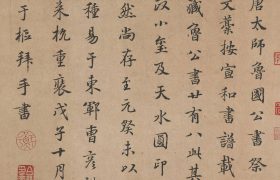 唐太師魯國公書祭
文藁按宣和書譜載
藏魯公書廿有八此其
以小璽及天水圓印
然尚存至元癸未以
種易于東鄆曹彥
来杭重裝戊子十月
于樞拜手書